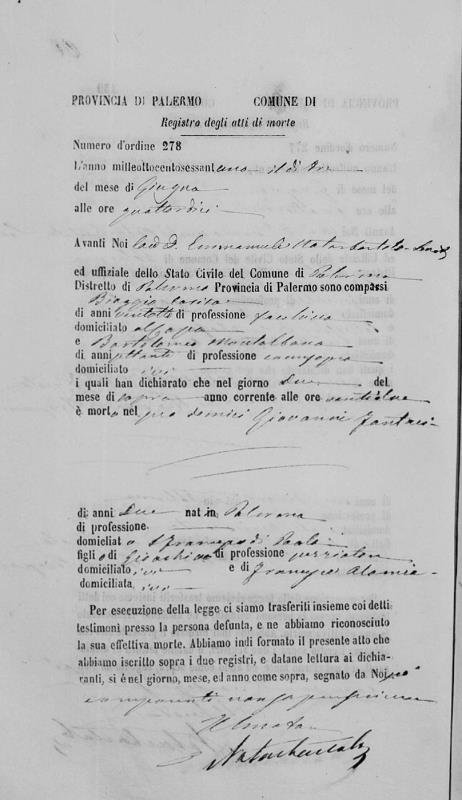 PROVINCIA DI PALERMO COMUNE DI
Registro degli atti di morte
Numero d'ordine 278
L'anno milleottocentosessantuno il dì tre
del mese di Giugno
alle ore quattordici
Avanti Noi Emmanuele Notarbartolo
ed uffiziale dello Stato Civile del Comune di Palermo
Distretto di Palermo Provincia di Palermo sono comparsi
Biaggio
di anni di professione
domiciliato
e Bartolomeo Montalbano
di anni ottanta di professione come sopra
domiciliato ivi
i quali han dichiarato che nel giorno due del
mese di sopra anno corrente alle ore ventidue
è morto nel Giovanni Fantaci
di anni Due nat in Palermo
di professione
domiciliat o S. Francesco di Paola
figli o di Gioachino di professione
domiciliato ivi e di Alomia
domiciliata ivi
Per esecuzione della legge ci siamo trasferiti insieme coi detti
testimoni presso la persona defunta, e ne abbiamo riconosciuto
la sua effettiva morte. Abbiamo indi formato il presente atto che
abbiamo iscritto sopra i due registri, e datane lettura ai dichia-
ranti, si è nel giorno, mese, ed anno come sopra, segnato da Noi
Notarbartolo